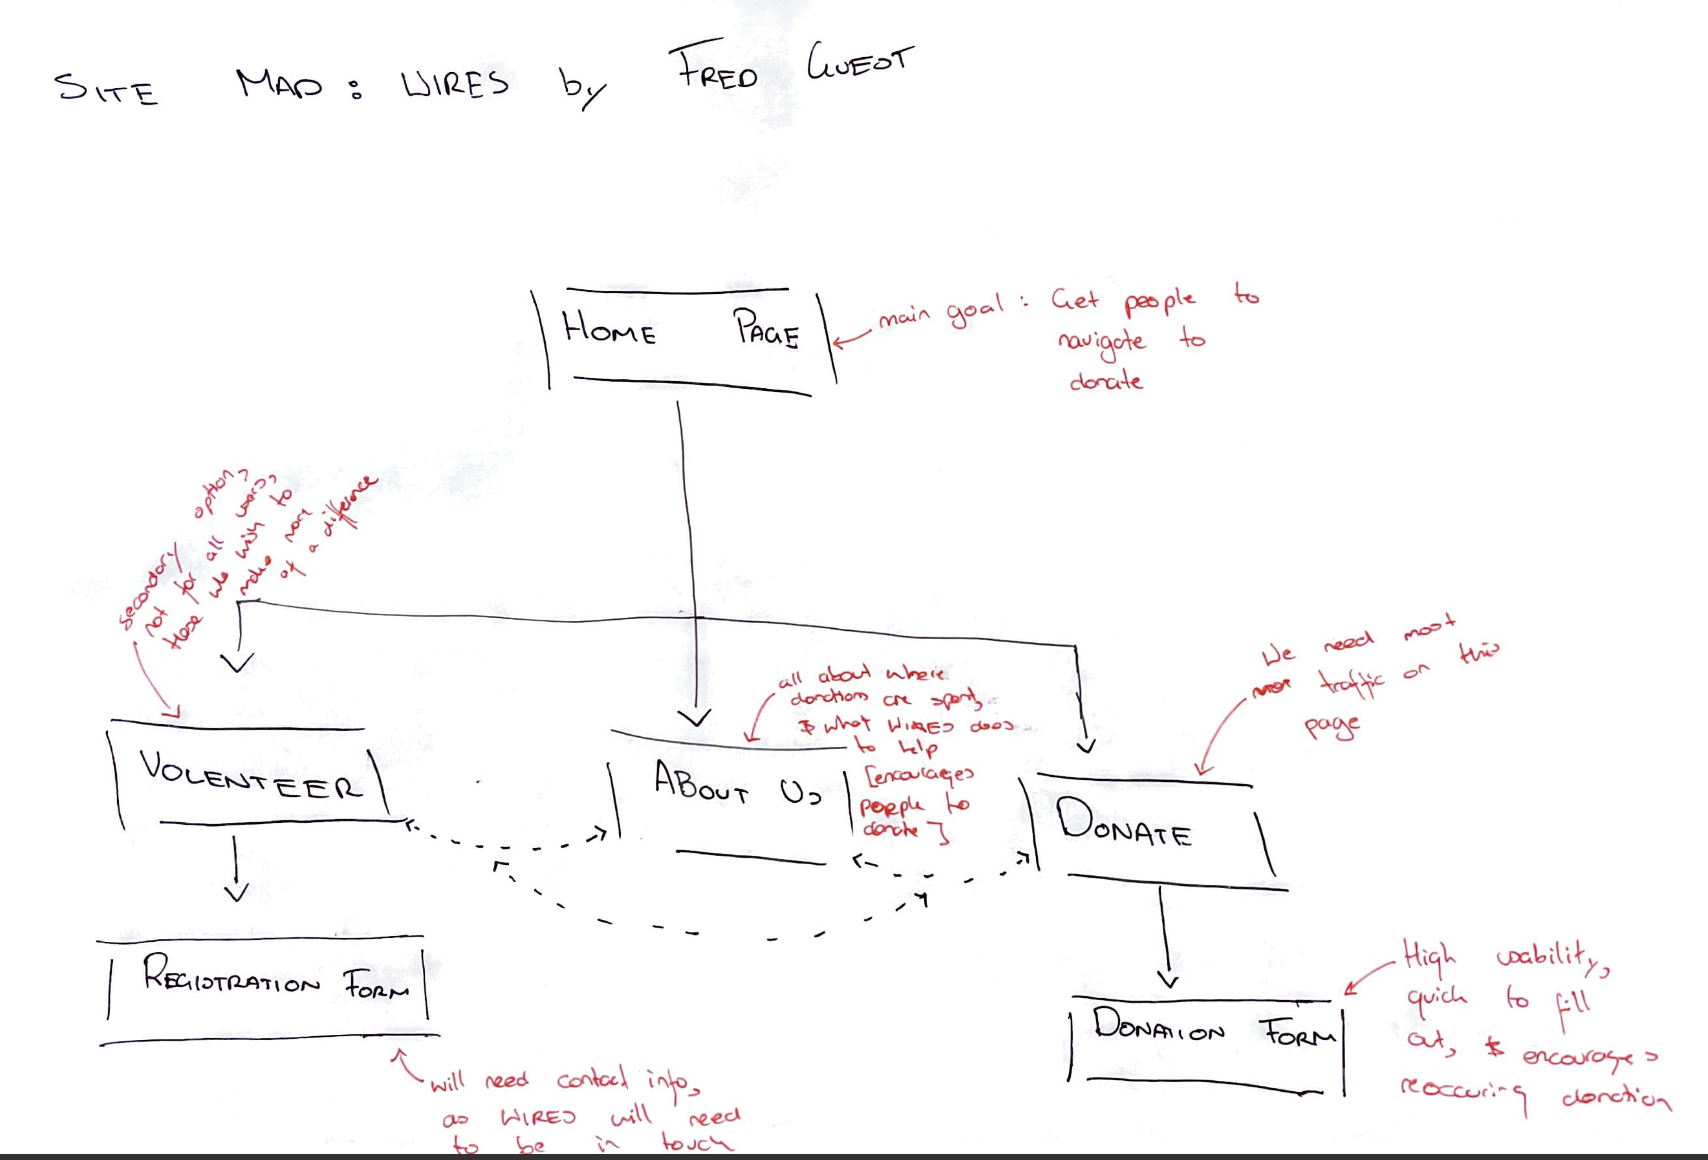 SITE MAP: WIRES by FRED GUEST
HOME PAGE
main goal: Get people to
navigate to
donate
secondary option,
not for all users,
those who wish to
make more
of a difference
VOLENTEER
all about where
donations are spent,
& what WIRES does
to help
[encourages
people to
donate]
ABOUT US
We need most
traffic on this
page
DONATE
REGISTRATION FORM
will need contact info,
as WIRES will need
to be in touch
DONATION FORM
High usability,
quick to fill
out, & encourages
reoccuring donation